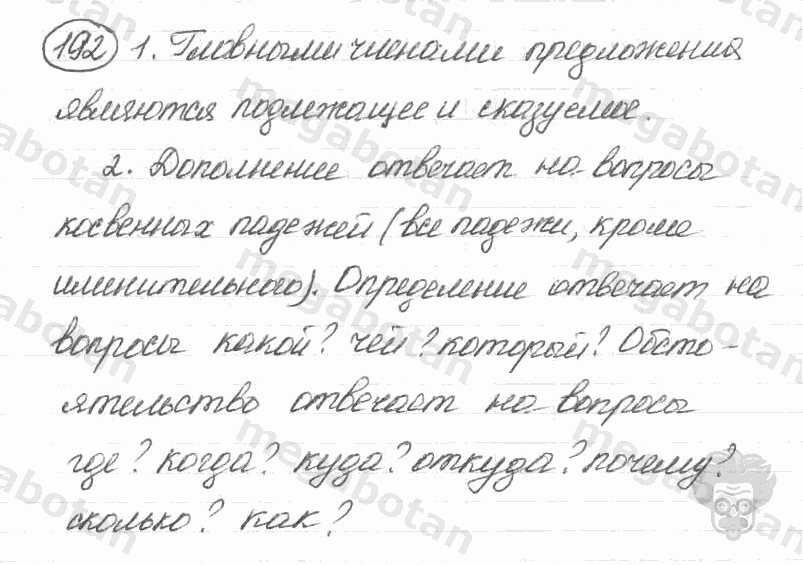 192 1. Главными членами предложения
являются подлежащее и сказуемое.
2. Дополнение отвечает на вопросы
косвенных падежей (все падежи, кроме
именительного). Определение отвечает на
вопросы какой? чей? который? Обсто-
ятельство отвечает на вопросы
где? когда? куда? откуда? почему?
сколько? как?
megabotan